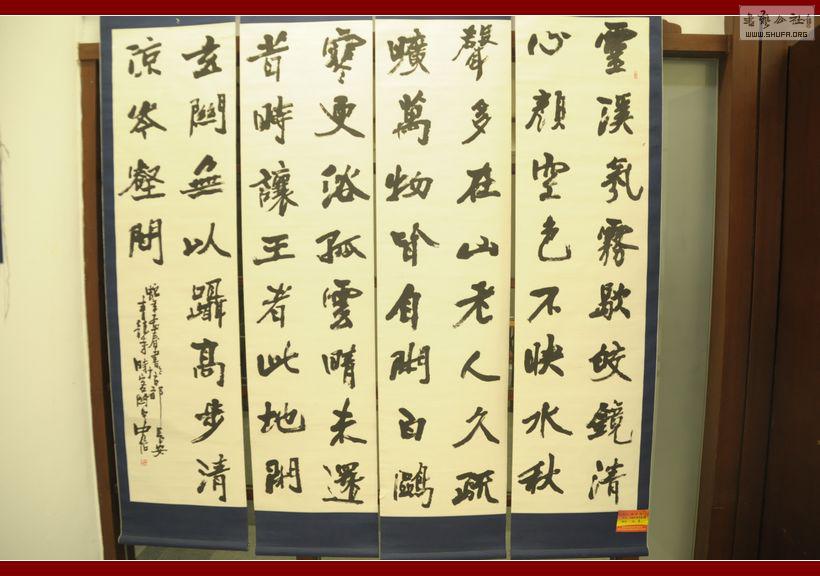 靈溪氛霧歇皎鏡清
心顏空色不映水秋
聲多在山老人久疏
曠萬物皆自閑白鷗
寒更浴孤雲晴未還
昔時讓王者此地閉
玄關無以躡高步清
涼岑壑間
WWW.SHUFA.ORG